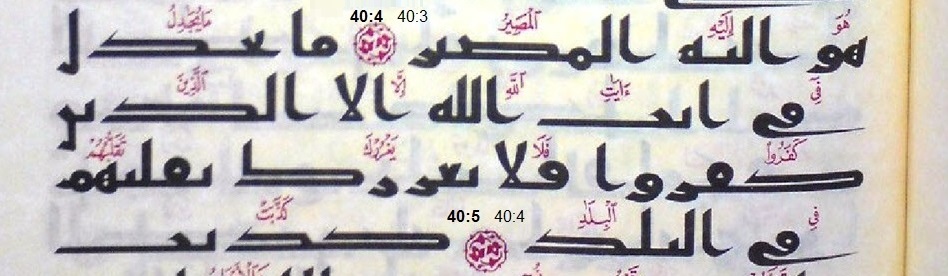 40:4 40:3
هُوَ إِلَيْهِ ٱلْمَصِيرُ مَا يُجَٰدِلُ
هو اليه المصير ما يجدل
فِىٓ ءَايَٰتِ ٱللَّهِ إِلَّا ٱلَّذِينَ
في ايت الله الا الذين
كَفَرُوا۟ فَلَا يَغْرُرْكَ تَقَلُّبُهُمْ
كفروا فلا يغررك تقلبهم
فِى ٱلْبِلَٰدِ 40:5 40:4 كَذَّبَتْ
في البلد كذبت